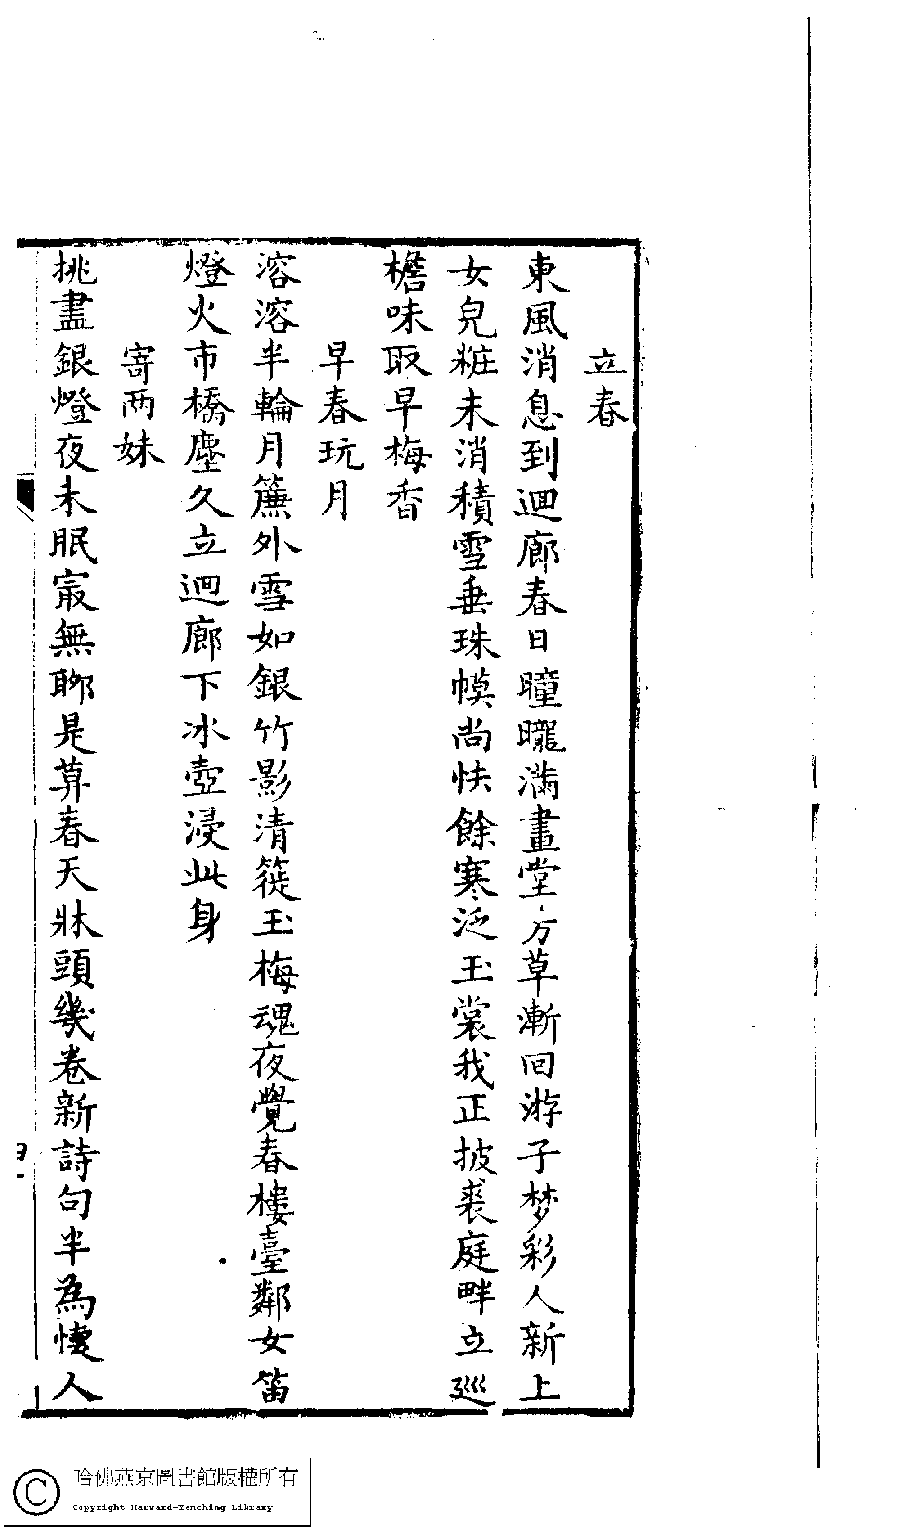 立春
東風消息到迴廊春日曈曨滿畫堂方草漸回游子梦彩人新上
女皃粧未消積雪垂珠幙尚怯餘寒泛玉裳我正披裘庭畔立巡
檐味取早梅香
早春玩月
溶溶半輪月簾外雪如銀竹影清簁玉梅魂夜覺春樓臺鄰女笛
燈火市橋塵久立迴廊下冰壺浸此身
寄两妹
挑盡銀燈夜未眠㝡無聊是算春天牀頭幾卷新詩句半為悽人
哈佛燕京圖書館版權所有
Copyright Harvard-Yenching Library